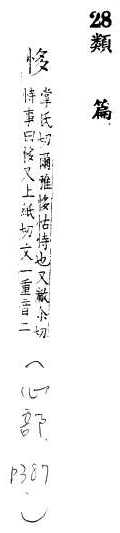 28
類篇
恀
掌氏切爾雅恀怙恃也又敞尒切
恃事曰恀又上紙切文一重音二
(心部 P387)